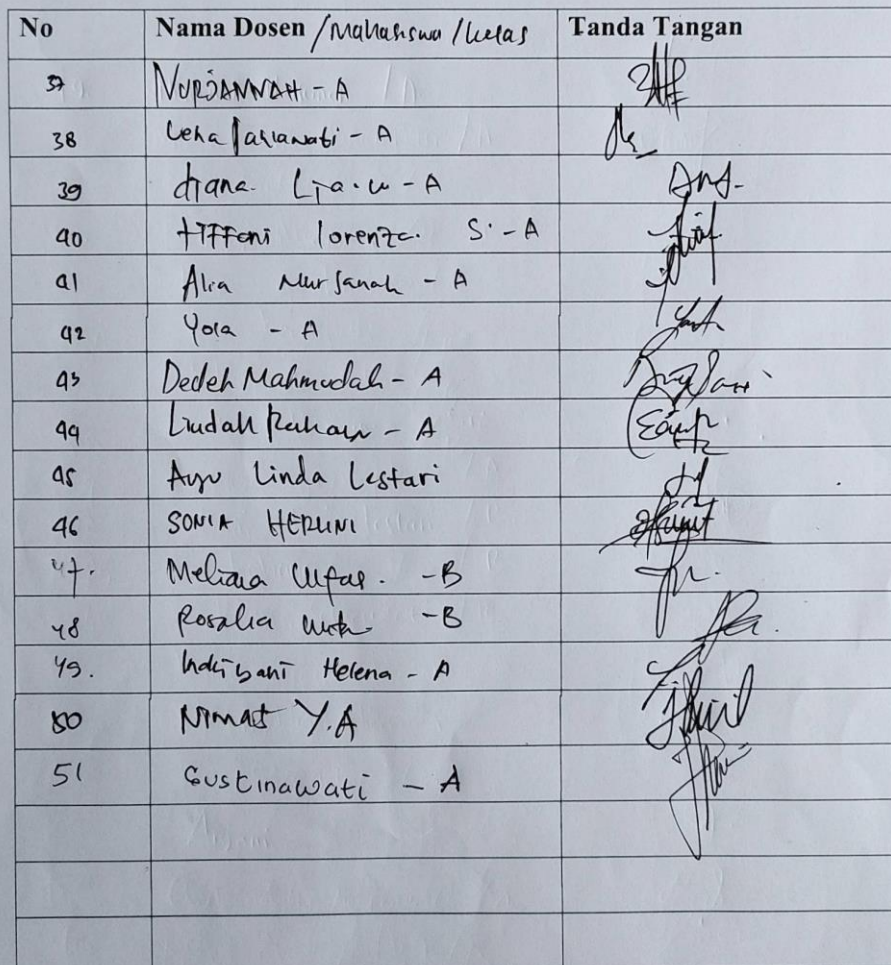 No Nama Dosen /Mahasiswa /kelas Tanda Tangan
37 NURJANNAH - A
38 - A
39 diana. Lia.w - A
40 tiffani lorenza. S. - A
41 Alia Nur Janah - A
42 Yola - A
43 Dedeh Mahmudah - A
44 Lindah - A
45 Ayu Linda Lestari
46 SONIA HERLINI
47. - B
48 Rosalia - B
49. Helena - A
50 Nimat Y.A
51 Gustinawati - A